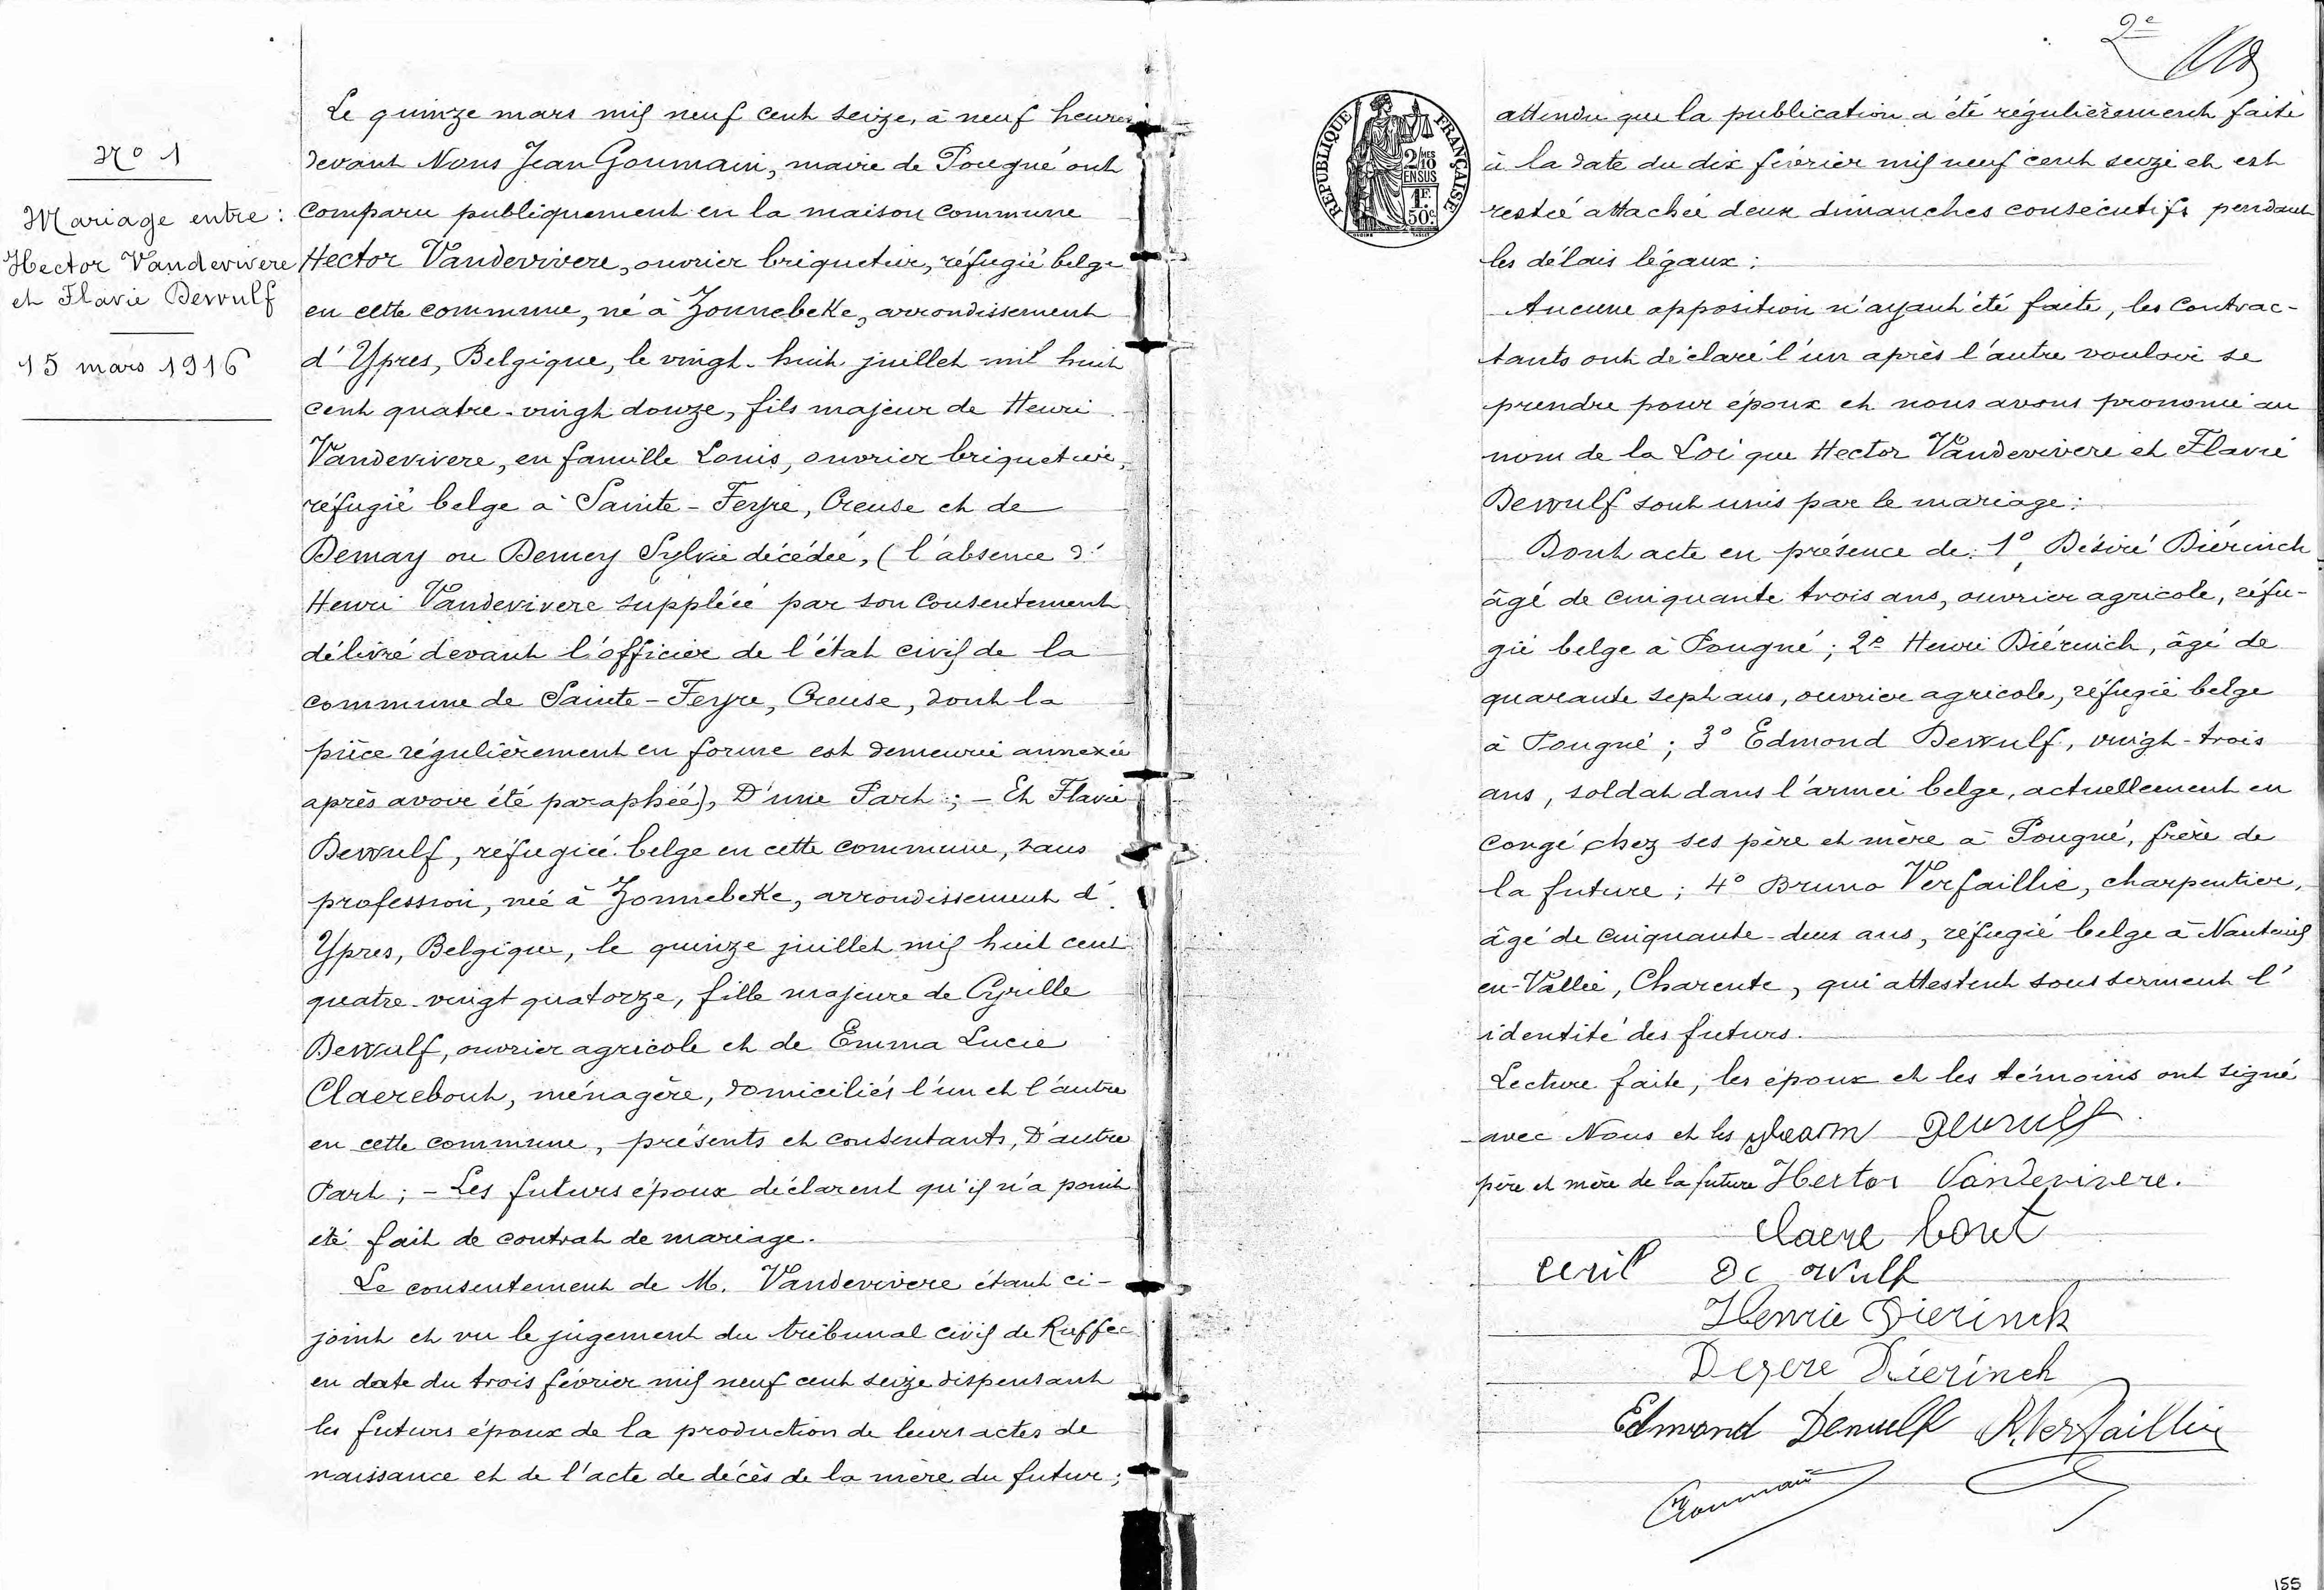 N° 1
Mariage entre :
Hector Vandevivere
et Flavie Dewulf
15 mars 1916
Le quinze mars mil neuf cent seize, à neuf heures
devant Nous Jean Goumain, maire de Pougné ont
comparu publiquement en la maison commune
Hector Vandevivere, ouvrier briquetier, réfugié belge
en cette commune, né à Zonnebeke, arrondissement
d'Ypres, Belgique, le vingt-huit juillet mil huit
cent quatre-vingt douze, fils majeur de Henri
Vandevivere, en famille Louis, ouvrier briquetier,
réfugié belge à Sainte-Feyre, Creuse et de
Demay ou Demey Sylvie décédée, (l'absence d'
Henri Vandevivere suppléée par son consentement
délivré devant l'officier de l'état civil de la
commune de Sainte-Feyre, Creuse, dont la
pièce régulièrement en forme est demeurée annexée
après avoir été paraphée), D'une Part ; - Et Flavie
Dewulf, réfugiée belge en cette commune, sans
profession, née à Zonnebeke, arrondissement d'
Ypres, Belgique, le quinze juillet mil huit cent
quatre-vingt quatorze, fille majeure de Cyrille
Dewulf, ouvrier agricole et de Emma Lucie
Claerebout, ménagère, domiciliés l'un et l'autre
en cette commune, présents et consentants, D'autre
Part ; - Les futurs époux déclarent qu'il n'a point
été fait de contrat de mariage.
Le consentement de M. Vandevivere étant ci-
joint et vu le jugement du tribunal civil de Ruffec
en date du trois février mil neuf cent seize dispensant
les futurs époux de la production de leurs actes de
naissance et de l'acte de décès de la mère du futur ;
2e
RÉPUBLIQUE FRANÇAISE
2/10 MES
EN SUS
1F.
50c
attendu que la publication a été régulièrement faite
à la date du dix février mil neuf cent seize et est
restée attachée deux dimanches consécutifs pendant
les délais légaux :
Aucune opposition n'ayant été faite, les contrac-
tants ont déclaré l'un après l'autre vouloir se
prendre pour époux et nous avons prononcé au
nom de la Loi que Hector Vandevivere et Flavie
Dewulf sont unis par le mariage :
Dont acte en présence de : 1°, Désiré Diérinch
âgé de cinquante trois ans, ouvrier agricole, réfu-
gié belge à Pougné ; 2° Henri Diérinch, âgé de
quarante sept ans, ouvrier agricole, réfugié belge
à Pougné ; 3° Edmond Dewulf, vingt-trois
ans, soldat dans l'armée belge, actuellement en
congé chez ses père et mère à Pougné, frère de
la future ; 4° Bruno Verfaillie, charpentier,
âgé de cinquante-deux ans, réfugié belge à Nanteuil
en-Vallée, Charente, qui attestent sous serment l'
identité des futurs.
Lecture faite, les époux et les témoins ont signé
avec Nous et les Dewulf
père et mère de la future Hector Vandevivere.
Claere bout
De Wulf
Henrie Dierinck
Dezere Dierinch
Edmond Dewulf Verfaillie
Goumain
155